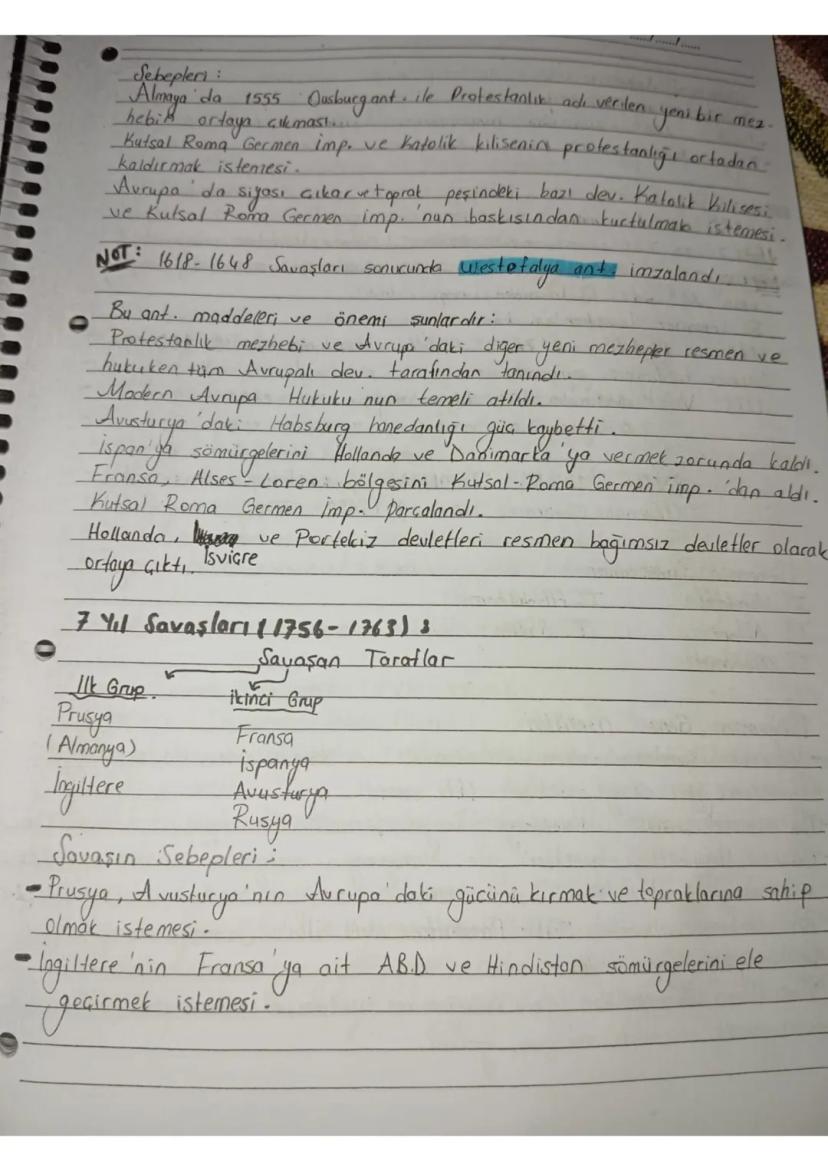 Sebepleri :
Almaya'da 1555 Ousburg ant. ile Protestanlık adı verilen yeni bir mez-
hebin ortaya çıkması.
Kutsal Roma Germen imp. ve Katolik kilisenin protestanlığı ortadan
kaldırmak istemesi.
Avrupa'da siyası çıkar ve toprak peşindeki bazı dev. Katolik Kilisesi
ve Kutsal Roma Germen imp.'nun baskısından kurtulmak istemesi.
NOT: 1618-1648 Savaşları sonucunda Westefalya ant. imzalandı.
Bu ant. maddeleri ve önemi şunlardır:
Protestanlık mezhebi ve Avrupa'daki diğer yeni mezhepler resmen ve
hukuken tüm Avrupalı dev. tarafından tanındı.
Modern Avrupa Hukuku'nun temeli atıldı.
Avusturya'daki Habsburg hanedanlığı güç kaybetti.
ispan'ya sömürgelerini Hollanda ve Danimarka'ya vermek zorunda kaldı.
Fransa, Alses-Loren bölgesini Kutsal-Roma Germen imp.'dan aldı.
Kutsal Roma Germen İmp. Parçalandı.
Hollanda, ve Portekiz devletleri resmen bağımsız devletler olarak
ortaya çıktı. İsviçre
7 Yıl Savaşları (1756-1763) :
Savaşan Taraflar
İlk Grup. İkinci Grup
Prusya Fransa
(Almanya) İspanya
İngiltere Avusturya
Rusya
Savaşın Sebepleri :
- Prusya, Avusturya'nın Avrupa'daki gücünü kırmak ve topraklarına sahip
olmak istemesi.
- İngiltere'nin Fransa'ya ait ABD ve Hindistan sömürgelerini ele
geçirmek istemesi.